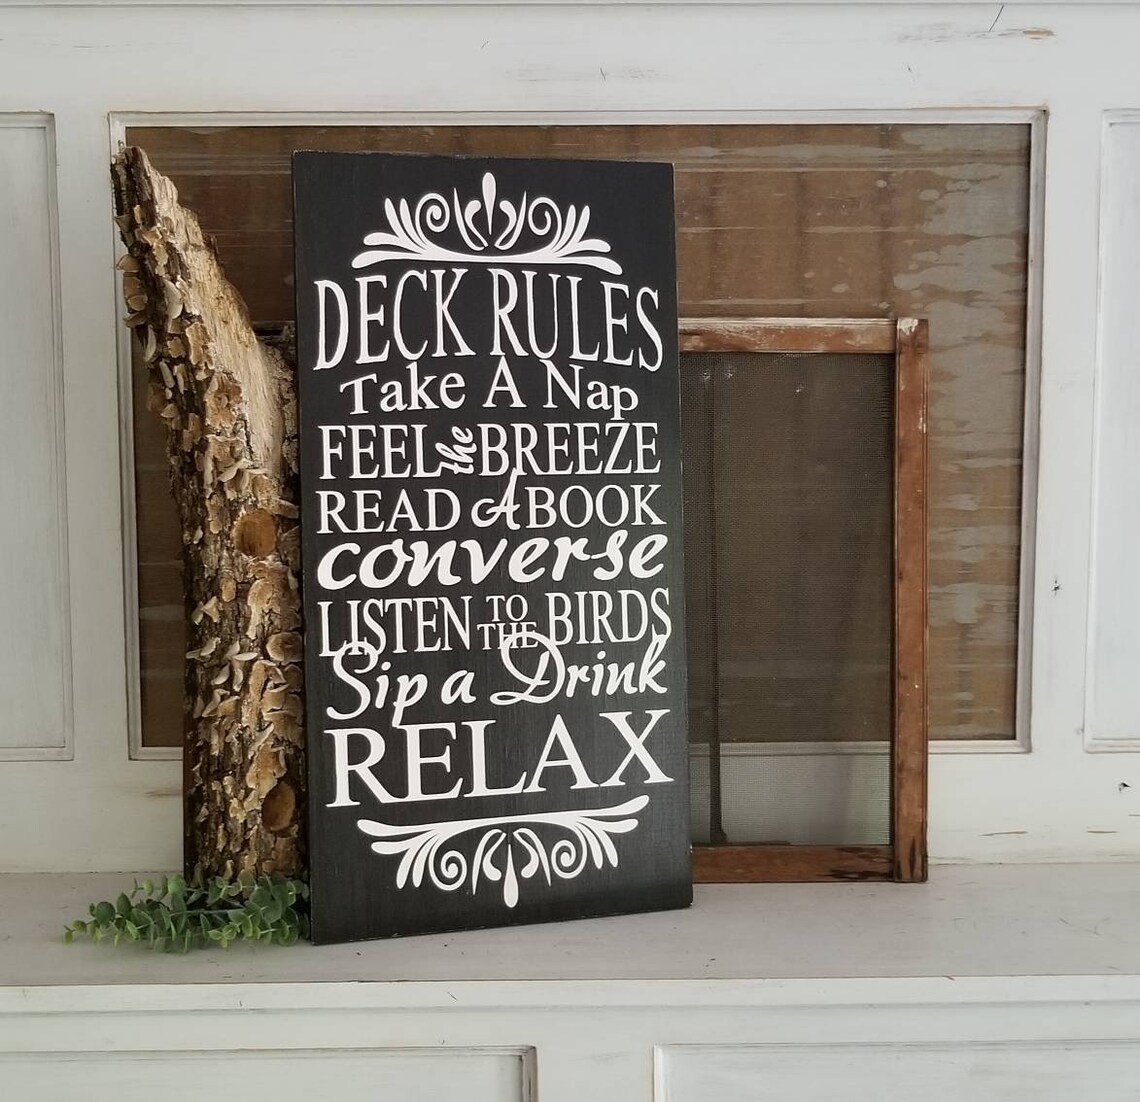 DECK RULES
Take A Nap
FEEL the BREEZE
READ A BOOK
converse
LISTEN TO THE BIRDS
Sip a Drink
RELAX